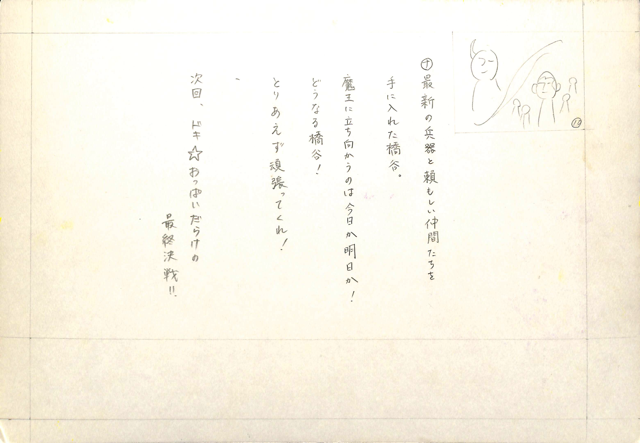 ㋤最新の兵器と頼もしい仲間たちを
手に入れた橋谷。
魔王に立ち向かうのは今日か明日か!
どうなる橋谷!
とりあえず頑張ってくれ!
次回、ドキ☆おっぱいだらけの
最終決戦!!